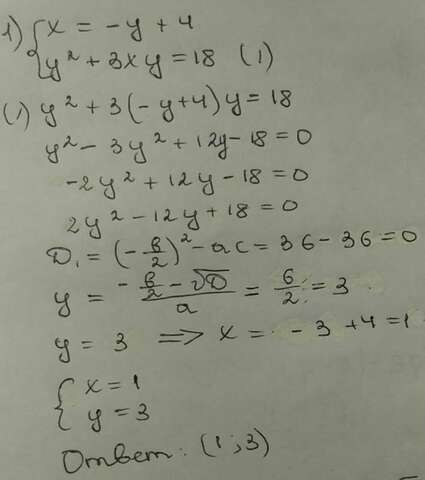 1) { x = -y + 4
y² + 3xy = 18 (1)
(1) y² + 3(-y+4)y = 18
y² - 3y² + 12y - 18 = 0
-2y² + 12y - 18 = 0
2y² - 12y + 18 = 0
D₁ = (-в/2)² - ac = 36 - 36 = 0
y = (-в/2 - √D)/a = 6/2 = 3
y = 3 => x = -3 + 4 = 1
{ x = 1
y = 3
Ответ: (1; 3)